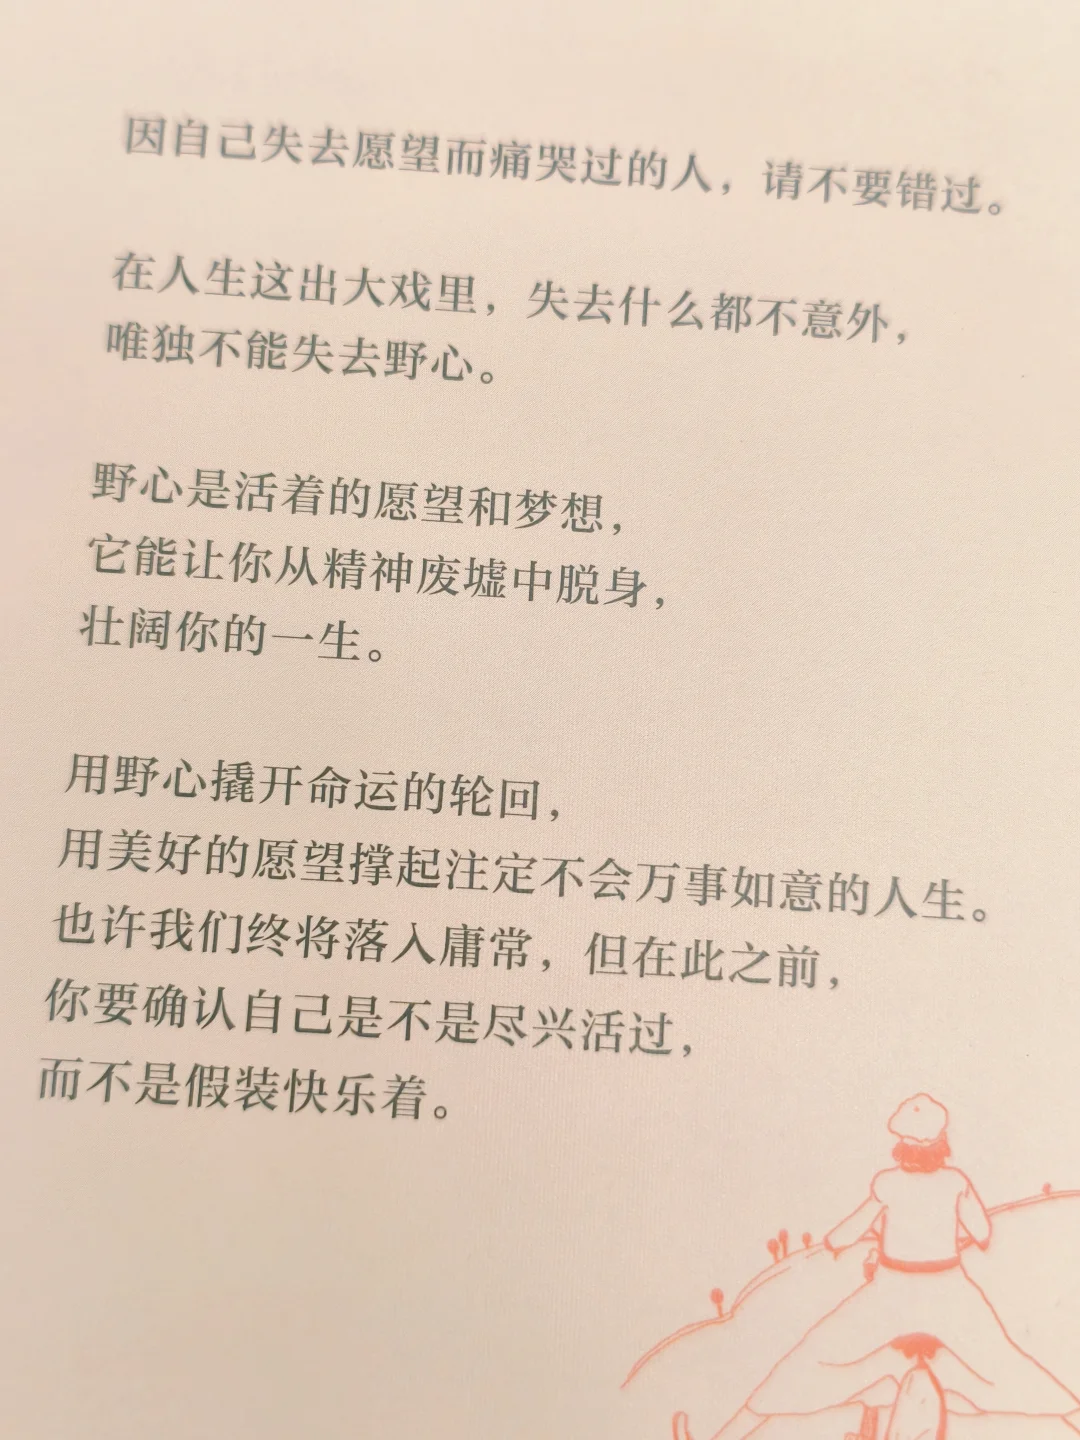 因自己失去愿望而痛哭过的人，请不要错过。
在人生这出大戏里，失去什么都不意外，
唯独不能失去野心。
野心是活着的愿望和梦想，
它能让你从精神废墟中脱身，
壮阔你的一生。
用野心撬开命运的轮回，
用美好的愿望撑起注定不会万事如意的人生。
也许我们终将落入庸常，但在此之前，
你要确认自己是不是尽兴活过，
而不是假装快乐着。